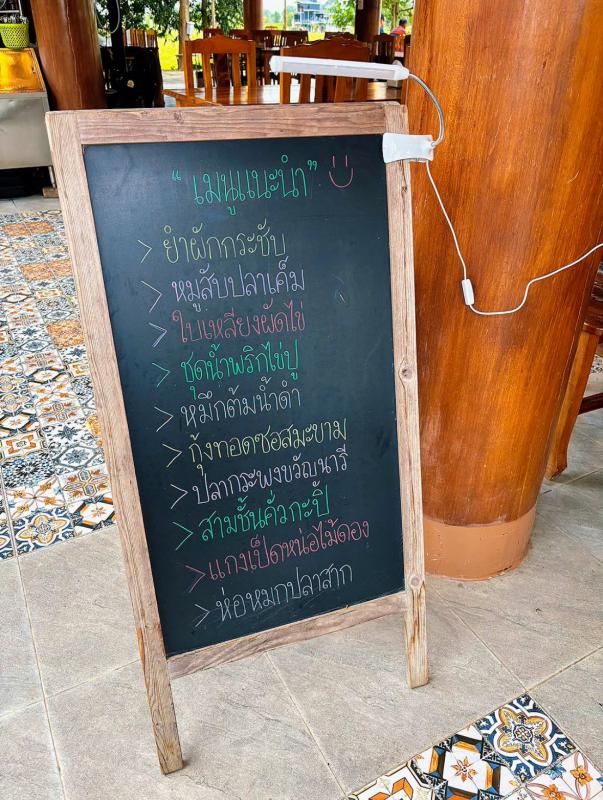 “ เมนูแนะนำ ”
> ยำผักกระชับ
> หมูสับปลาเค็ม
> ใบเหลียงผัดไข่
> ชุดน้ำพริกไข่ปู
> หมึกต้มน้ำดำ
> กุ้งทอดซอสมะขาม
> ปลากระพงขวัญนารี
> สามชั้นคั่วกะปิ
> แกงเป็ดหน่อไม้ดอง
> ห่อหมกปลาสาก